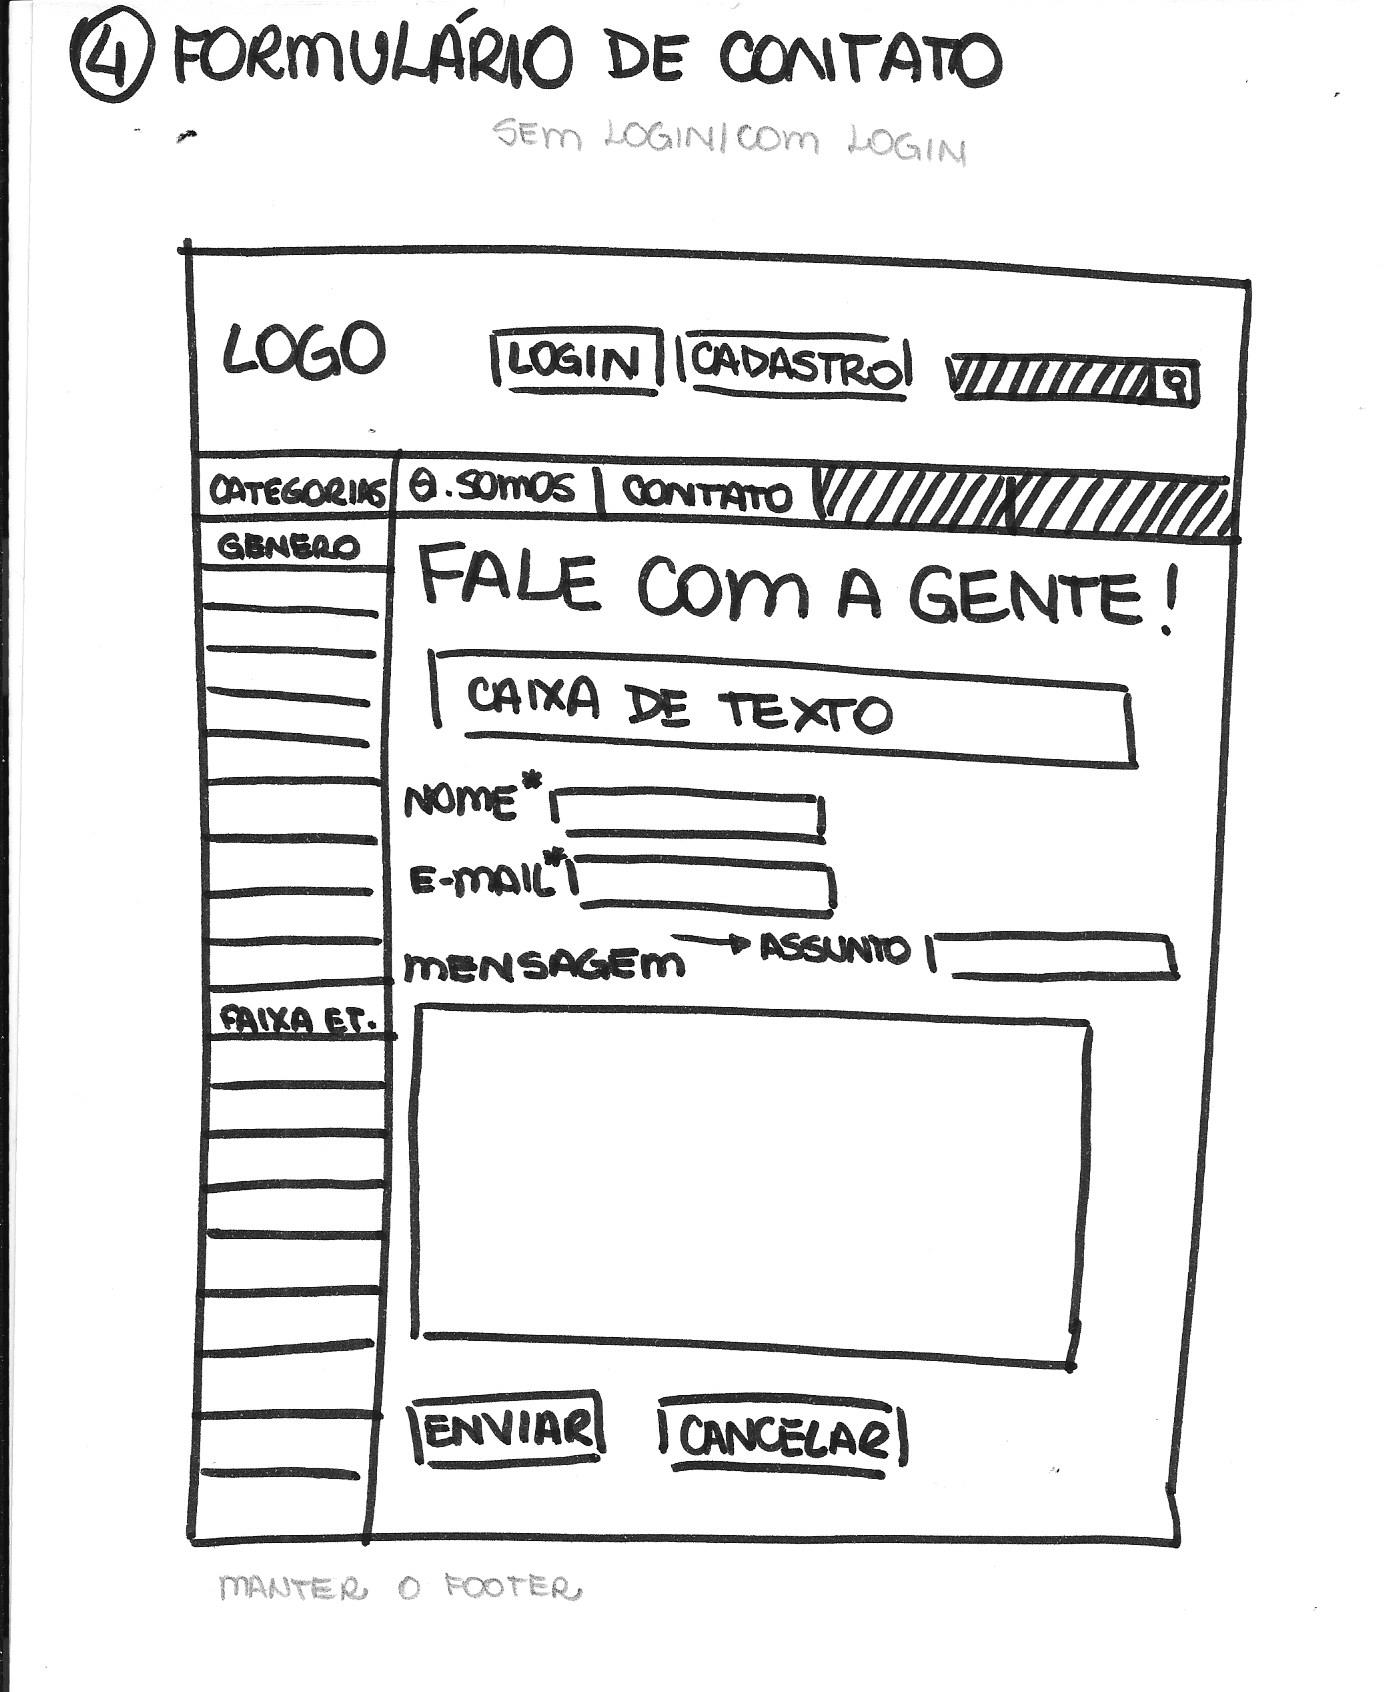 4 FORMULÁRIO DE CONTATO
SEM LOGIN/COM LOGIN
LOGO LOGIN CADASTRO
CATEGORIAS Q.SOMOS CONTATO
GENERO
FALE COM A GENTE!
CAIXA DE TEXTO
NOME*
E-MAIL*
MENSAGEM → ASSUNTO
FAIXA ET.
ENVIAR CANCELAR
MANTER O FOOTER